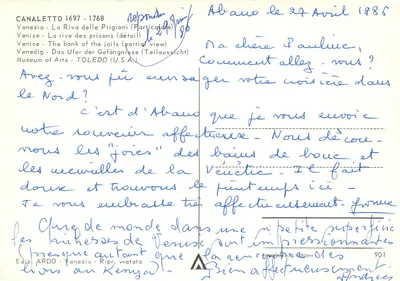 CANALETTO 1697 - 1768
Venezia - La Riva delle Prigioni (Particolare)
Venise - La rive des prisons (détail)
Venice - The bank of the jails (partial view)
Venedig - Das Ufer der Gefängnisse (Teilansicht)
Museum of Arts - TOLEDO (U.S.A.)
réponse
le 29
Abano le 27 Avril 1986
Ma chère Pauline,
Comment allez-vous ?
Avez-vous pu envisager votre croisière dans
le Nord ?
C'est d'Abano que je vous envoie
notre souvenir affectueux - Nous décou-
vrons les "joies" des bains de boue et
les merveilles de la Vénétie - Il fait
doux et trouvons le printemps ici -
Je vous embrasse très affectueusement - Yvonne
Que de monde dans une si petite superficie
les richesses de Venise sont impressionnantes
presque autant que la rencontre des
lions au Kenya. Bien affectueusement
Ediz. ARDO - Venezia - Ripr. vietata
901